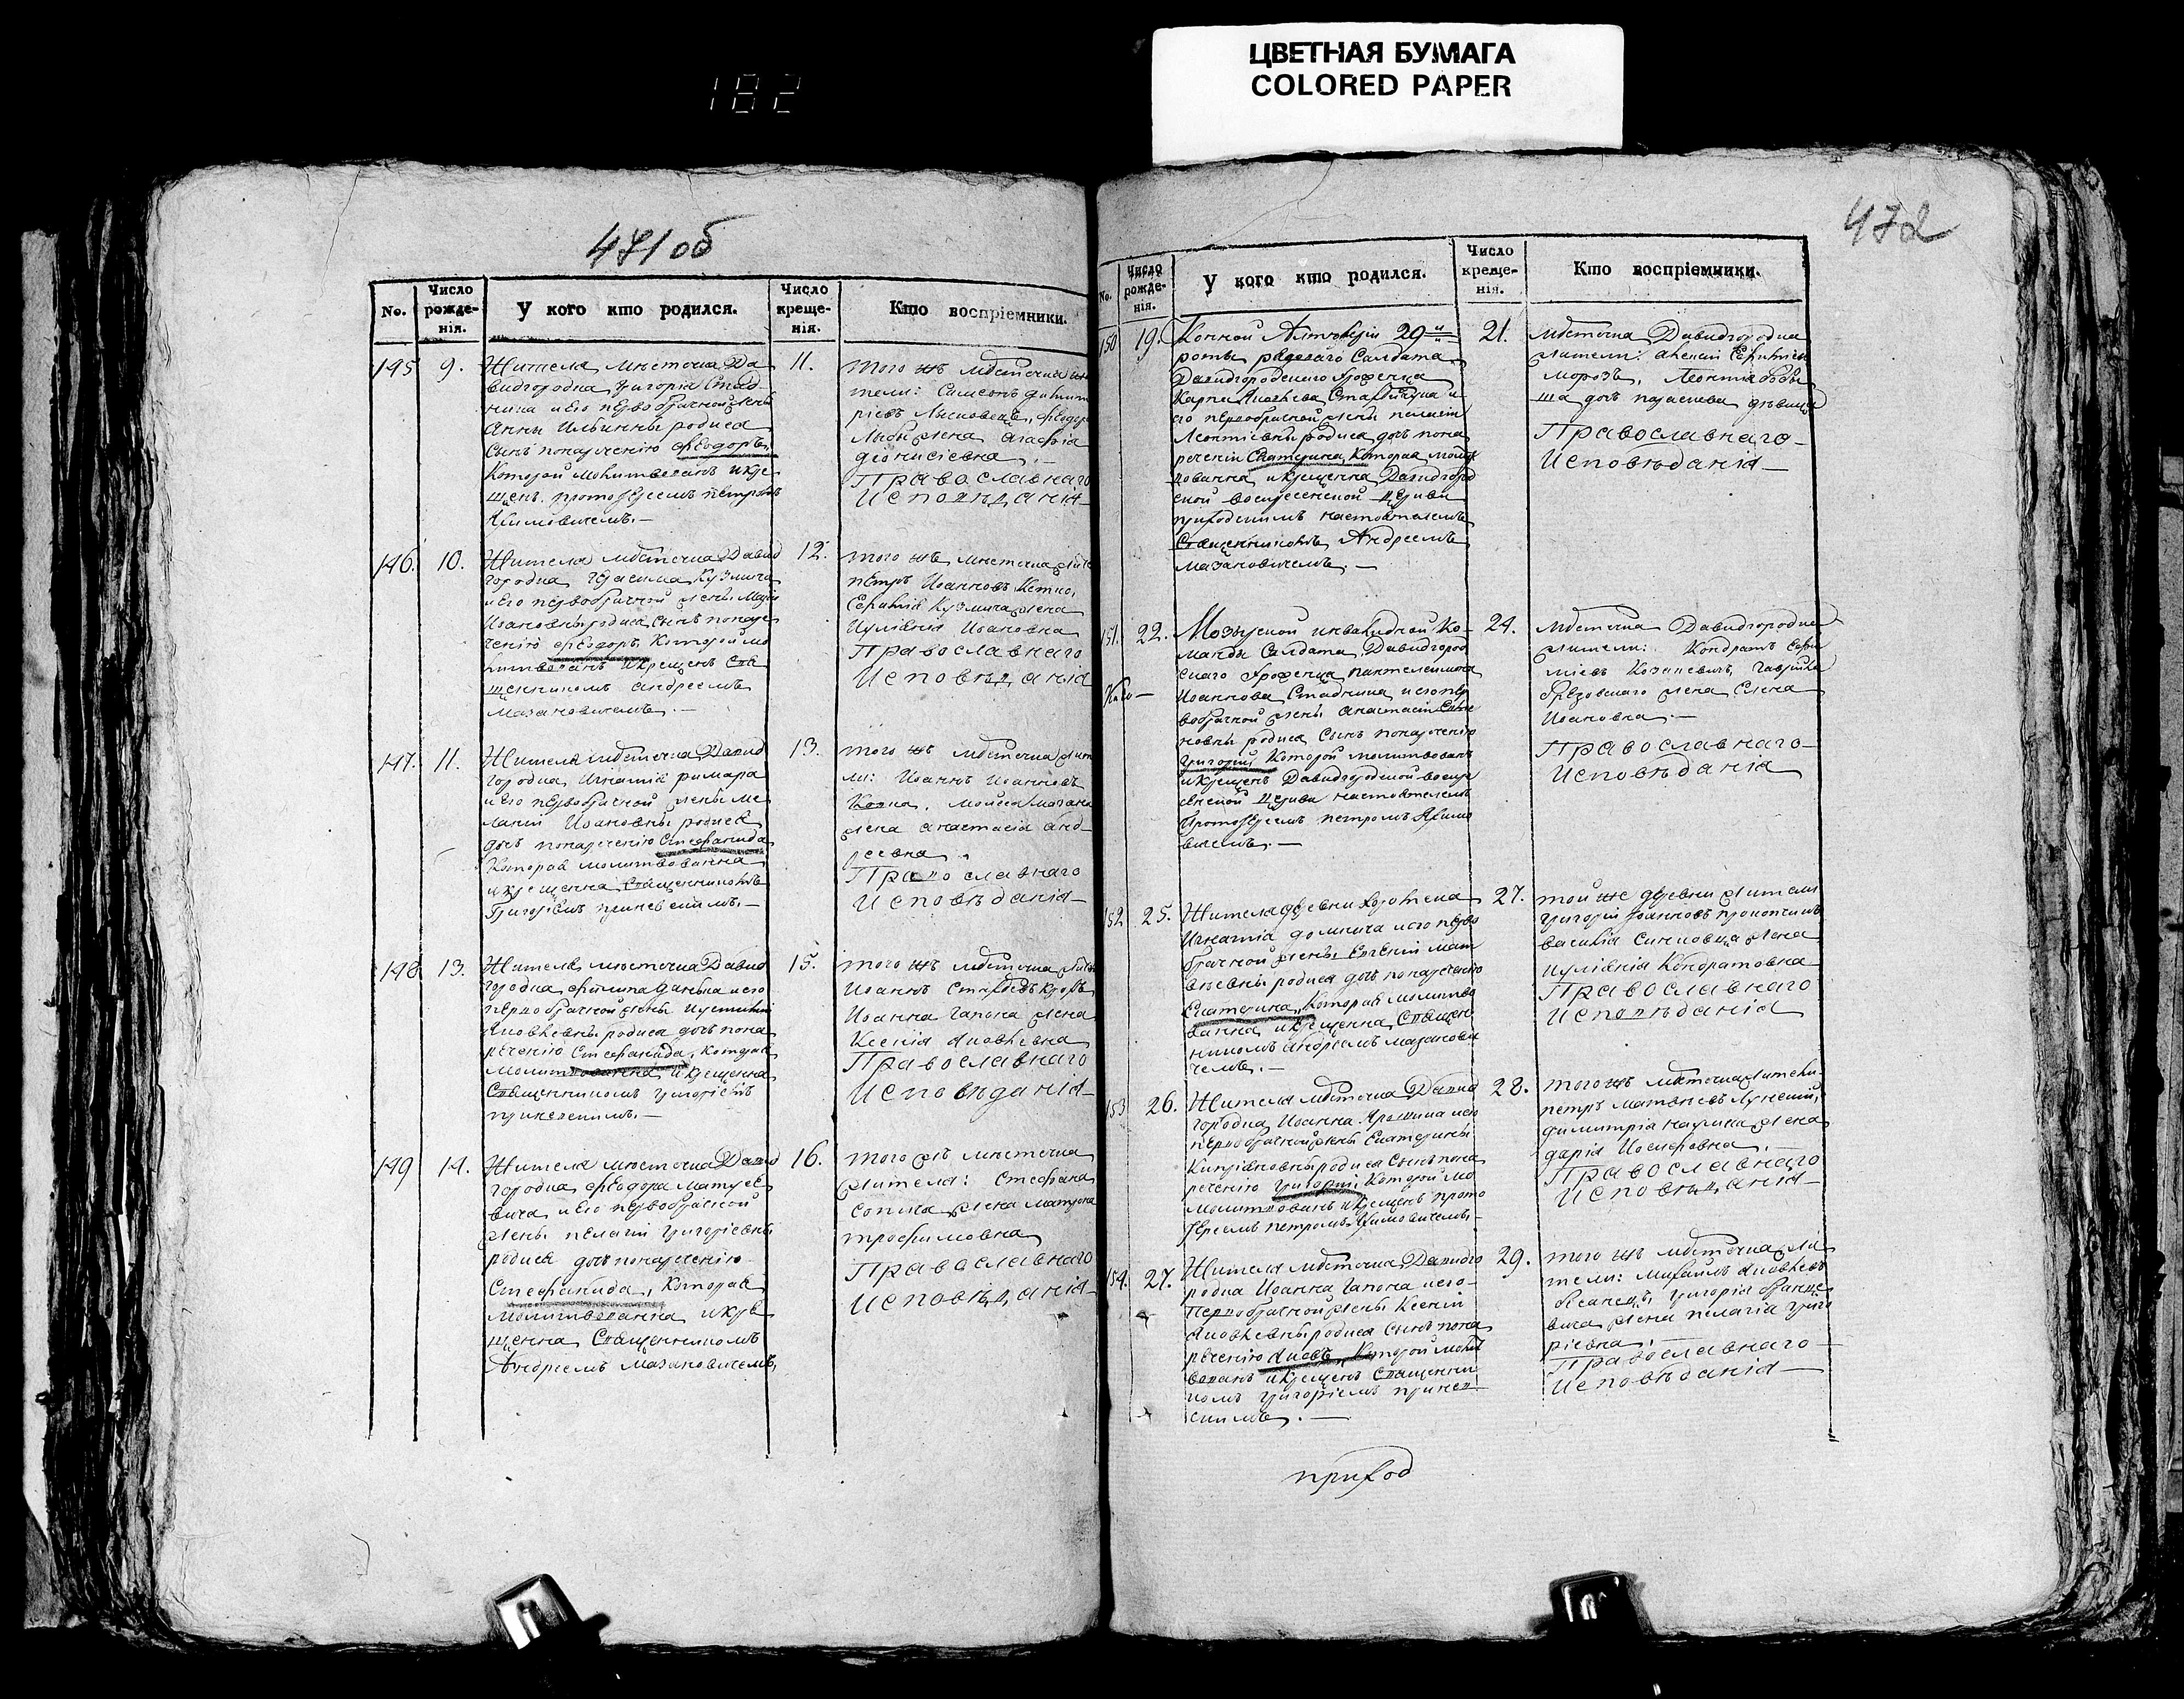 ЦВЕТНАЯ БУМАГА
COLORED PAPER
182
471 об
No.
Число рожде-нія.
У кого кто родился.
Число креще-нія.
Кто воспріемники.
145
9.
Жителя мѣсточка Да
видгородка Григорія Стад
ника и его первобрачной жены
Анны Ильины родися
сынъ понаречению Феодоръ
Которой молитвеванъ икре
щенъ протоіереемъ Петромъ
Климовичемъ. —
11.
того жъ мѣсточка
тели: Симеонъ Димит
ріевъ
жена Агафія
Діонисіевна. —
Православнаго
Исповѣданія
146.
10.
Жителя мѣсточка Давид
городка Герасима Кузмича
и его первобрачной жены Маріи
Иоановны родися сынъ понаре
ченію Феодоръ Которой мо
литвованъ икрещенъ Свя
щенникомъ Андреемъ
Мазановичемъ. —
12.
того жъ мѣсточка
Петръ Иоанновъ
Ефимія Кузмича жена
Иуліянія Иоановна
Православнаго
Исповѣданія
147.
11.
Жителя мѣсточка Давид
городка Игнатія Римара
и его первобрачной жены Ме
ланіи Иоановны родися
дочъ понареченію Стефанида
Которая молитвованна
икрещенна Священникомъ
Григоріемъ
13.
того жъ мѣсточка жит
ли: Иоаннъ Иоанновъ
Мойсея
жена Анастасія Анд
реевна.
Православнаго
Исповѣданія
148
13.
Жителя мѣсточка Давид
городка Филипа и его
первобрачной жены Иустиніи
Яковлевны родися дочъ пона
реченію Стефанида, Которая
молитвованна икрещенна
Священникомъ Григоріемъ
15.
того жъ мѣсточка
Иоаннъ
Иоанна Гапона жена
Ксенія Яковлевна
Православнаго
Исповѣданія
149
14.
Жителя мѣсточка Давид
городка Феодора Матусе
вича и его первобрачной
жены Пелагіи Григоріевны
родися дочъ понареченію
Стефанида, Которая
молитвеванна икре
щенна Священникомъ
Андреемъ Мазановичемъ
16.
того жъ мѣсточка
жителя: Стефана
жена Матрона
Трофимовна
Православнаго
Исповѣданія
472
No.
Число рожде-нія.
У кого кто родился.
Число креще-нія.
Кто воспріемники.
150
19.
Конной Артилеріи 29й
роты рядоваго Салдата
Давидгородскаго уроженца
Карпа Яковлева и
его первобрачной жены Пелагіи
Леонтіевны родися дочъ пона
реченіи Екатерина, Которая молит
вованна икрещенна Давидгород
ской Воскресенской Церкви
приходскимъ настоятелемъ
Священникомъ Андреемъ
Мазановичемъ. —
21.
мѣсточка Давидгородка
жители: Алексій
Морозъ, Леонтія
дочъ дѣвица
Православнаго
Исповѣданія
151.
22.
Мозырской инвалидной Ко
манды Салдата Давидгород
скаго уроженца Пантелеимона
Иоаннова Стадника и его пер
вобрачной жены Анастасіи
родися Сынъ понареченію
Григорій Которой молитвованъ
икрещенъ Давидгородской Воскре
сенской Церкви настоятелемъ
Протоіереемъ Петромъ Климо
вичемъ. —
24.
мѣсточка Давидгородка
жители: Кондратъ
Козакевичъ, Гавриила
жена Елена
Иоановна. —
Православнаго
Исповѣданія
152
25.
Жителя деревни
Игнатія и его перво
брачной жены Евгеніи Мат
вѣевны родися дочъ понареченію
Екатерина, Которая молитво
ванна икрещенна Священ
никомъ Андреемъ Мазанови
чемъ. —
27.
той же деревни жители
Григорій Иоанновъ Прокопчикъ
Василія жена
Иуліянія Кондратовна
Православнаго
Исповѣданія
153
26.
Жителя мѣсточка Давид
городка Иоанна и его
первобрачной жены Екатерины
Кипріяновны родися Сынъ пона
реченію Григорій Которой мо
молитвованъ икрещенъ прото
іереемъ Петромъ Климовичемъ. —
28.
того жъ мѣсточка жители.
Петръ Матвѣевъ
Димитрія жена
Дарія Иосифовна. —
Православнаго
Исповѣданія
154.
27.
Жителя мѣсточка Давидго
родка Иоанна Гапона и его
первобрачной жены Ксеніи
Яковлевны родися Сынъ пона
реченію Яковъ, Которой молит
вованъ икрещенъ Священни
комъ Григоріемъ
29.
того жъ мѣсточка жи
тели: Михаилъ Яковлевъ
Григорія
вича жена Пелагія Григо
ріевна.
Православнаго
Исповѣданія
приход